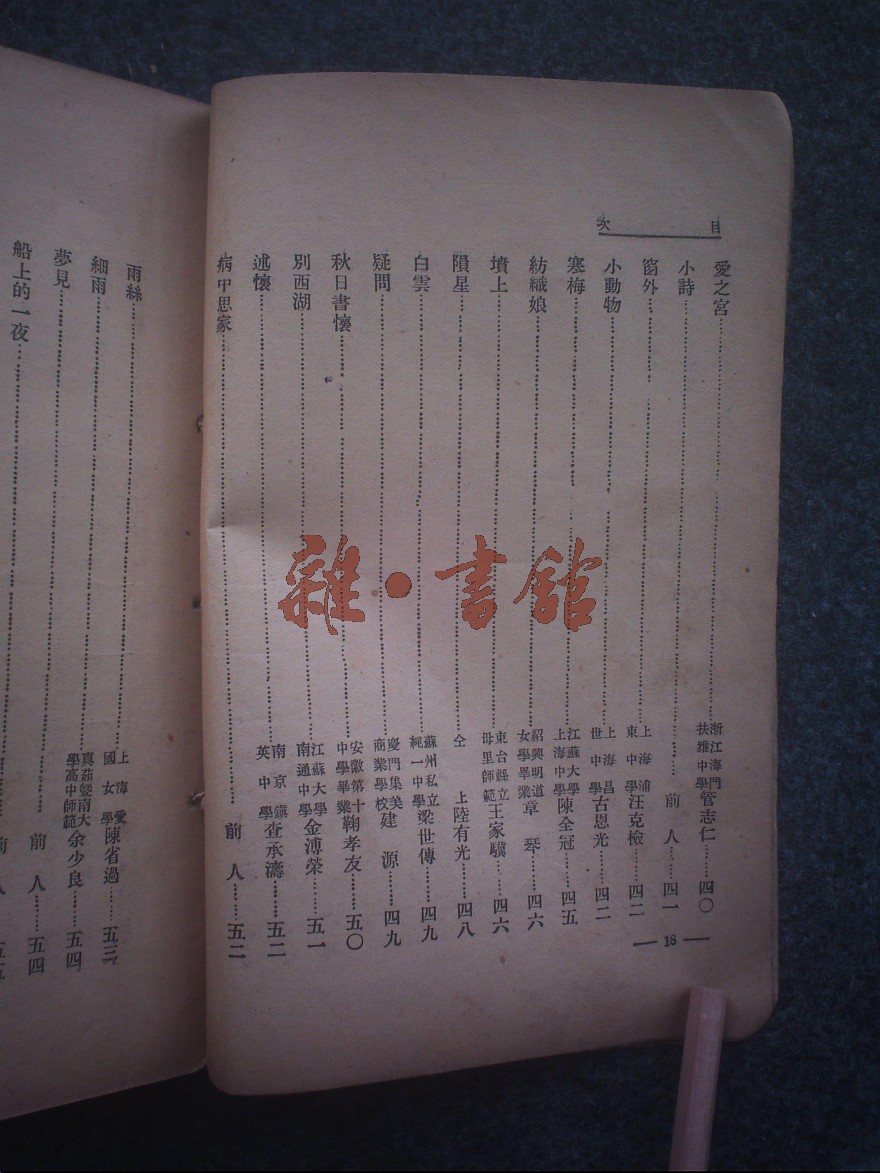 目次
愛之宮 浙江海門扶雅中學 管志仁 四〇
小詩 前人 四一
窗外 上海浦東中學 汪克檢 四二
小動物 上海昌世中學 古恩光 四二
寒梅 江蘇大學上海中學 陳全冠 四五
紡織娘 紹興明道女學畢業 章琴 四六
墳上 東台縣立母里師範 王家驥 四六
隕星 仝上 陸有光 四八
白雲 蘇州私立純一中學 梁世傳 四九
疑問 廈門集美商業學校 建源 四九
秋日書懷 安徽第十中學畢業 鞠孝友 五〇
別西湖 江蘇大學南通中學 金溥榮 五一
述懷 南京鎮英中學 查承濤 五二
病中思家 前人 五二
18
雨絲 上海愛國女學 陳省過 五三
細雨 真茹暨南大學高中師範 余少良 五四
夢見 前人 五四
船上的一夜 前人 五五
雜·書館